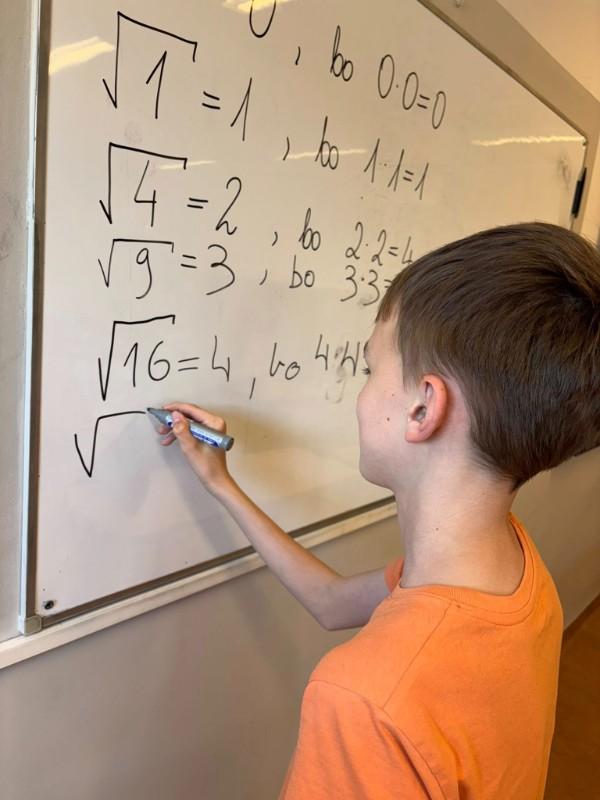 , bo 0·0=0
√1 = 1 , bo 1·1=1
√4 = 2 , bo 2·2=4
√9 = 3 , bo 3·3=
√16 = 4 , bo 4·4
√